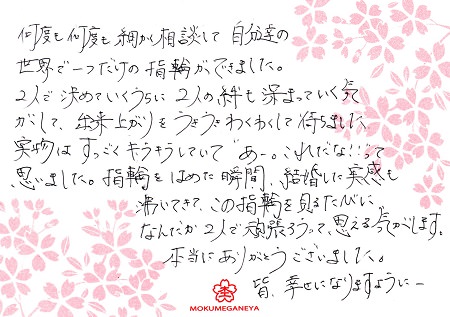 何度も何度も細かく相談して自分達の
世界で一つだけの指輪ができました。
2人で決めていくうちに2人の絆も深まっていく気
がして、出来上がりをうきうきわくわくして待ちました。
実物はすっごくキラキラしていて"あー。これだな!!って
思いました。指輪をはめた瞬間、結婚した実感も
沸いてきて、この指輪を見るたびに、
なんだか2人で頑張ろうって、思える気がします。
本当にありがとうございました。
皆、幸せになりますように–
MOKUMEGANEYA